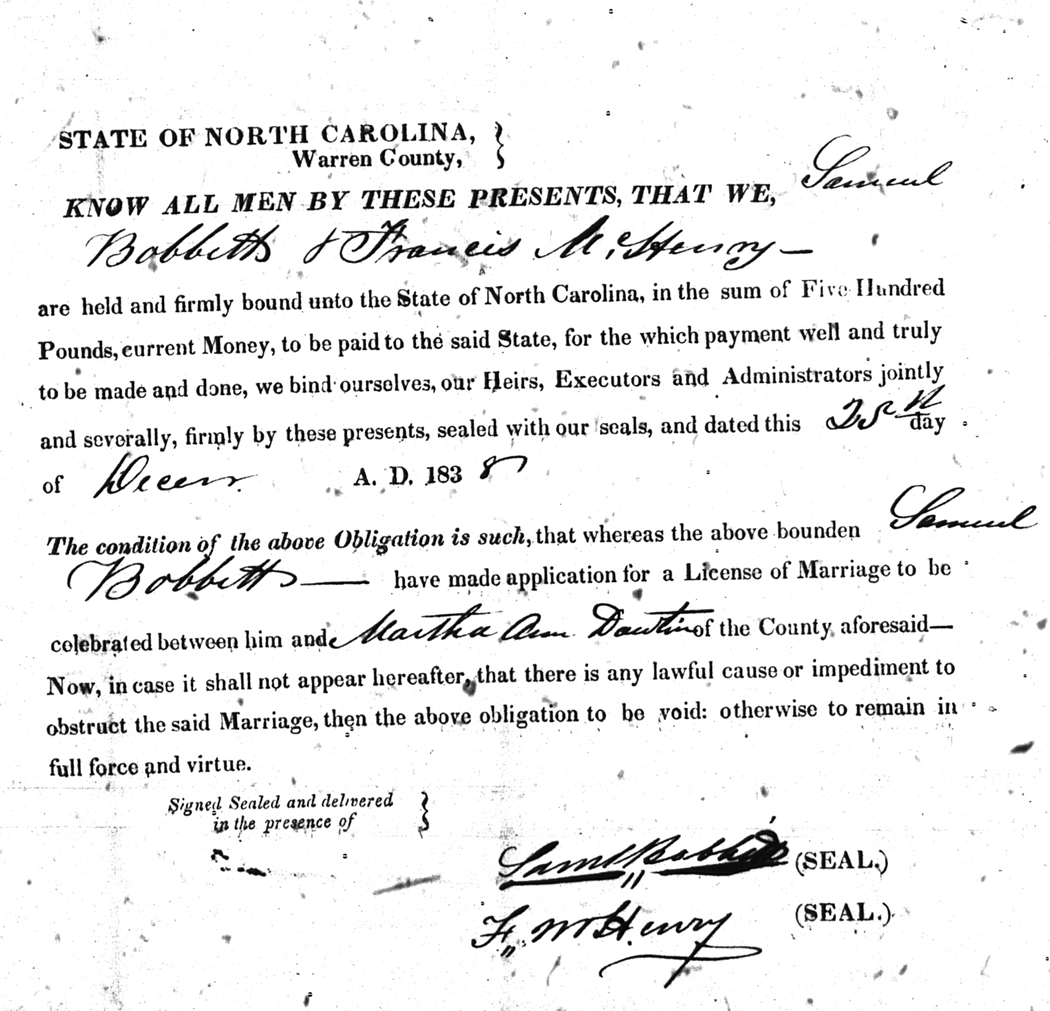 STATE OF NORTH CAROLINA,
Warren County,
KNOW ALL MEN BY THESE PRESENTS, THAT WE, Samuel
Bobbitt & Francis McHenry —
are held and firmly bound unto the State of North Carolina, in the sum of Five Hundred
Pounds, current Money, to be paid to the said State, for the which payment well and truly
to be made and done, we bind ourselves, our Heirs, Executors and Administrators jointly
and severally, firmly by these presents, sealed with our seals, and dated this day
of Decem. A. D. 1838
The condition of the above Obligation is such, that whereas the above bounden Samuel
Bobbitt — have made application for a License of Marriage to be
celebrated between him and Martha Ann of the County aforesaid—
Now, in case it shall not appear hereafter, that there is any lawful cause or impediment to
obstruct the said Marriage, then the above obligation to be void: otherwise to remain in
full force and virtue.
Signed Sealed and delivered
in the presence of
Saml Bobbitt (SEAL.)
F. McHenry (SEAL.)